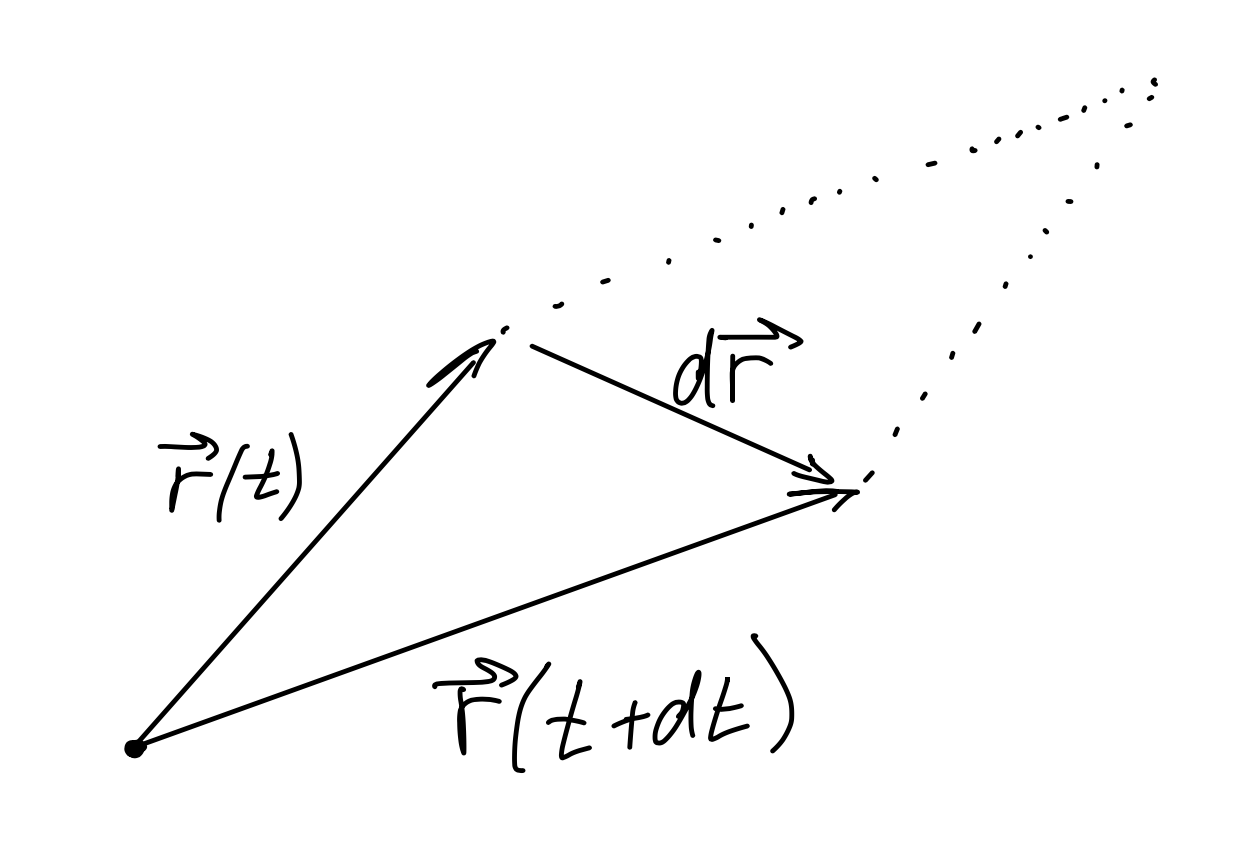 d r⃗
r⃗(t)
r⃗(t+dt)